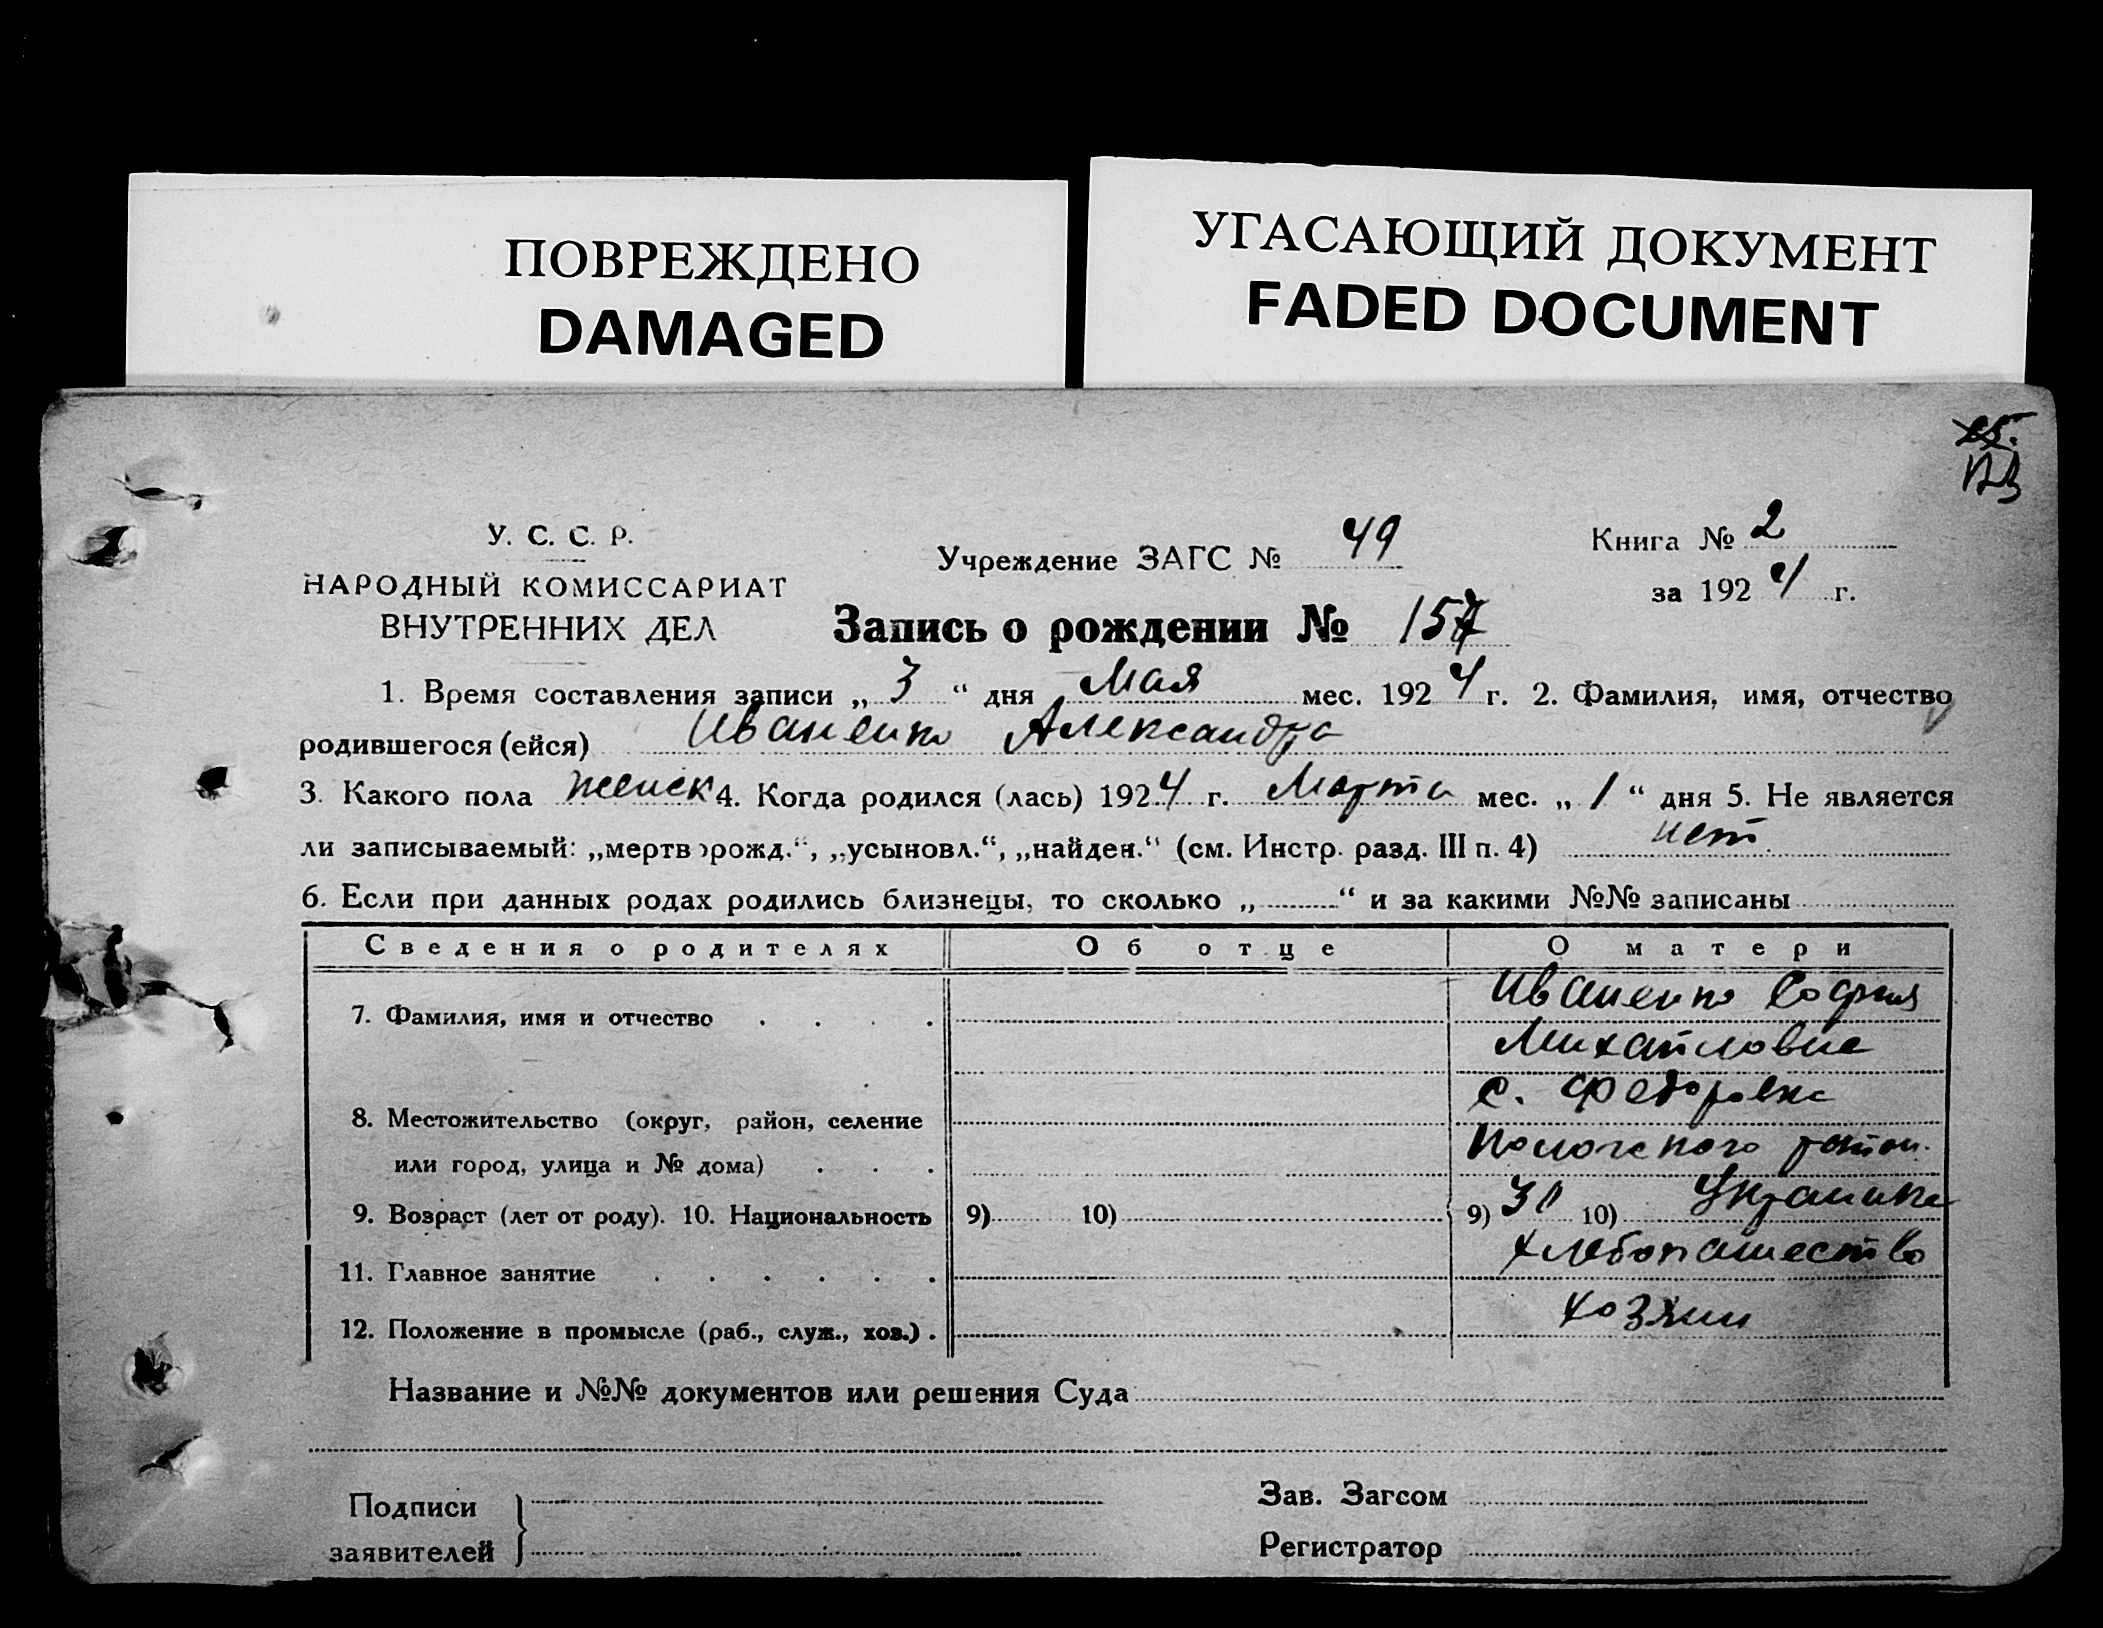 ПОВРЕЖДЕНО
DAMAGED
УГАСАЮЩИЙ ДОКУМЕНТ
FADED DOCUMENT
У. С. С. Р.
НАРОДНЫЙ КОМИССАРИАТ
ВНУТРЕННИХ ДЕЛ
Учреждение ЗАГС № 49
Книга № 2
за 1924 г.
Запись о рождении № 157
1. Время составления записи „ 3 “ дня Мая мес. 1924 г. 2. Фамилия, имя, отчество
родившегося (ейся) Иваненко Александра
3. Какого пола женск 4. Когда родился (лась) 1924 г. Марта мес. „ 1 “ дня 5. Не является
ли записываемый: „мертворожд.“, „усыновл.“, „найден.“ (см. Инстр. разд. III п. 4) нет
6. Если при данных родах родились близнецы, то сколько „ “ и за какими №№ записаны
Сведения о родителях Об отце О матери
7. Фамилия, имя и отчество . . . . Иваненко София
Михайловна
с. Федоровка
8. Местожительство (округ, район, селение
или город, улица и № дома) . . . Пологского район.
9. Возраст (лет от роду). 10. Национальность 9) 10) 9) 30 10) Украинка
11. Главное занятие . . . . . . хлебопашество
12. Положение в промысле (раб., служ., хоз.) . хозяин
Название и №№ документов или решения Суда
Подписи
заявителей
Зав. Загсом
Регистратор